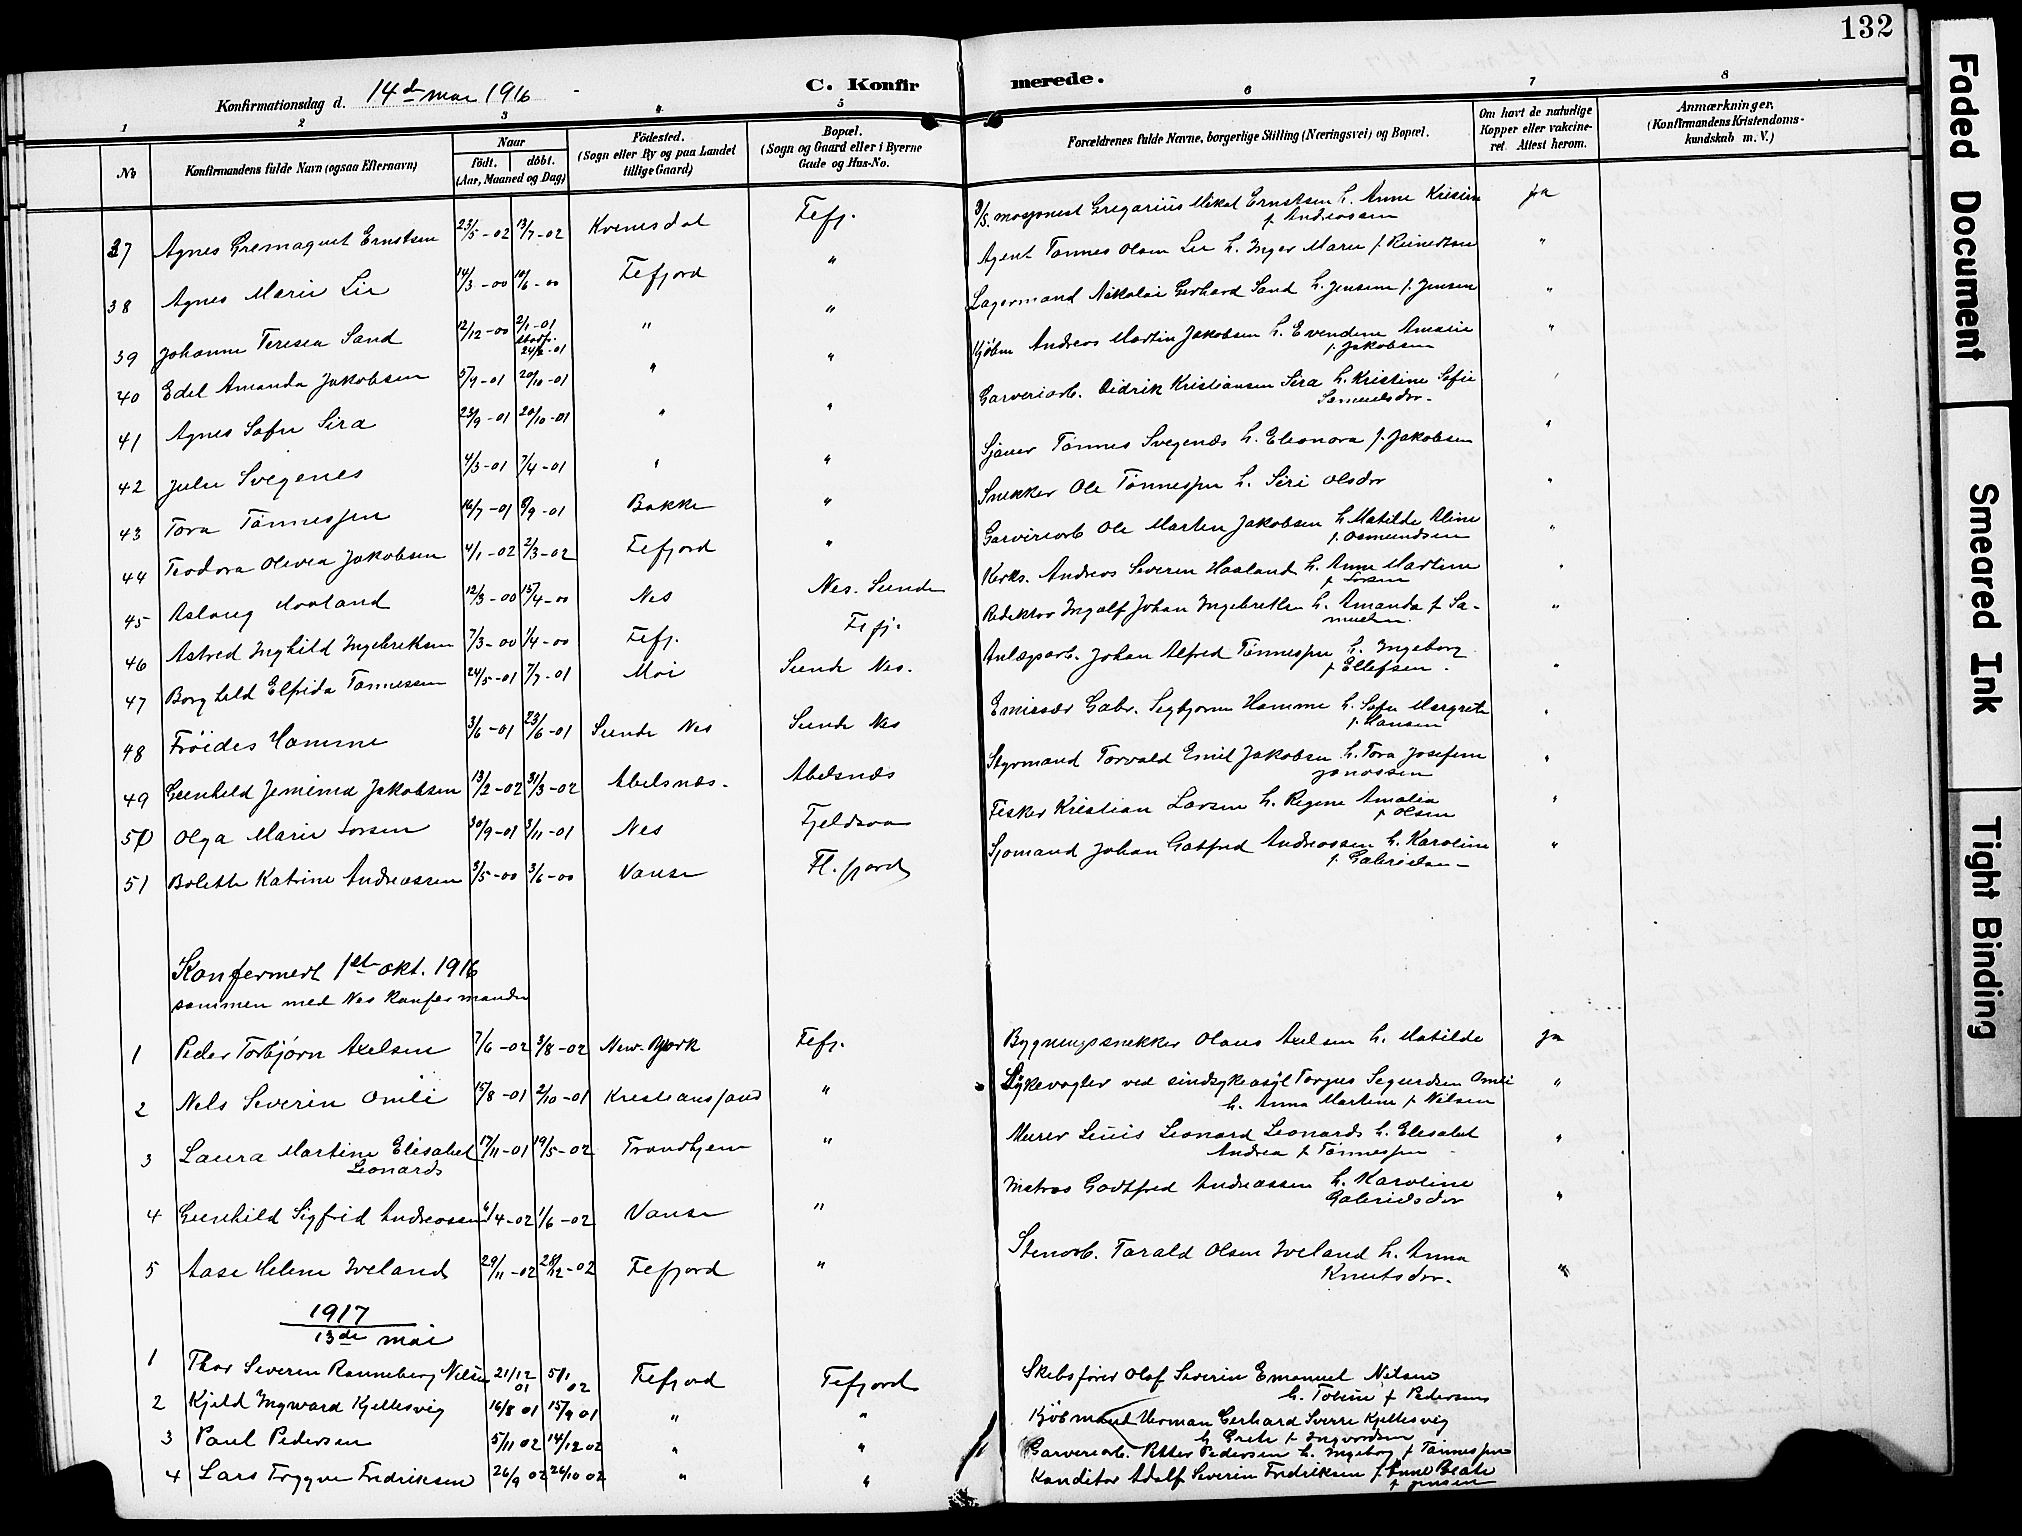 132
Konfirmationsdag d. 14de mai 1916
C. Konfirmerede.
1 2 3 4 5 6 7 8
No
Konfirmandens fulde Navn (ogsaa Efternavn)
Naar
født. døbt.
(Aar, Maaned og Dag)
Fødested.
(Sogn eller By og paa Landet
tillige Gaard)
Bopæl.
(Sogn og Gaard eller i Byerne
Gade og Hus-No.
Forældrenes fulde Navne, borgerlige Stilling (Næringsvei) og Bopæl.
Om havt de naturlige
Kopper eller vakcine-
ret. Attest herom.
Anmærkninger.
(Konfirmandens Kristendoms-
kundskab m. V.)
37 Agnes Ernstsen 23/5-02 13/7-02 Kvinesdal Fefj. Gregarius Mikal Ernstsen h. Anne Kristine ja
f. Andreassen
38 Agnes Marie Lie 14/3-00 10/6-00 Fefjord " Agent Tønnes Olsen Lie h. Inger Marie f. Reinertsen "
39 Johanne Teresea Sand 12/12-00 2/1-01 " " Lagermand Nikolai Gerhard Sand h. Jensine f. Jensen "
24/2-01
40 Edel Amanda Jakobsen 5/9-01 20/10-01 " " Kjøbm Andreas Martin Jakobsen h. Evendine Amalie "
f. Jakobsen
41 Agnes Sofie Sira 23/9-01 20/10-01 " " Garveriarb. Didrik Kristiansen Sira h. Kristine Sofie
Samuelsdtr.
42 Julie Svegenes 4/3-01 7/4-01 " " Sjauer Tønnes Svegenæs h. Eleonora f. Jakobsen "
43 Tora Tønnessen 16/7-01 8/9-01 Bakke " Snekker Ole Tønnessen h. Siri Olsdtr "
44 Teodora Olevia Jakobsen 4/1-02 2/3-02 Fefjord " Garveriarb Ole Martin Jakobsen h. Matilde Aline "
f. Osmundsen
45 Aslaug Haaland 12/3-00 15/4-00 Nes Nes. Sunde Kirks. Andreas Severin Haaland h. Anne Martine "
46 Astrid Inghild Ingebrektsen 7/3-00 1/4-00 Fefj. Fefj. Redaktør Ingolf Johan Ingebrektsen h. Amanda f. Sa-
muelsen. "
47 Borghild Elfrida Tønnessen 24/5-01 7/7-01 Moi Sunde Nes. Anlægsarb. Johan Alfred Tønnessen h. Ingeborg
f. Ellefsen. "
48 Frøides Hamme 3/6-01 23/6-01 Sunde Nes Sunde Nes Emissær Gabr. Sigbjørn Hamme h. Sofie Margrete
f. Hansen "
49 Gunhild Jemima Jakobsen 13/2-02 31/3-02 Abelsnæs. Abelsnæs Styrmand Torvald Emil Jakobsen h. Tora Josefine
Jonassen "
50 Olga Marie Larsen 30/9-01 3/11-01 Nes Fjeldsaa Fisker Kristian Larsen h. Regine Amalia
f. Olsen "
51 Bolette Katrine Andreassen 3/5-00 3/6-00 Vanse Fl.fjord Sjømand Johan Gotfred Andreassen h. Karoline
f. Gabrielsen "
Konfermert 1ste okt. 1916
sammen med Nes konfermander
1 Peder Torbjørn Axelsen 7/6-02 3/8-02 New-York Fefj. Bygningssnekker Olaus Axelsen h. Matilde ja
2 Nels Severin Omli 15/8-01 2/10-01 Kristiansand " Sykevogter ved sindsykeasyl Torjus Segurdsen Omli "
h. Anna Martine f. Nilsen
3 Laura Martine Elisabet 17/11-01 19/5-02 Trondhjem " Murer Leonard Leonards h. Elisabet "
Leonards Andrea f. Tønnessen
4 Gunhild Sigfrid Andreassen 6/4-02 1/6-02 Vanse " Matros Godtfred Andreassen h. Karoline
Gabrielsdtr "
5 Aase Helene Iveland 29/11-02 28/12-02 Fefjord " Stenarb. Tarald Olsen Iveland h. Anna
Knutsdtr. "
1917
13de mai
1 Thor Severin Ranneberg Nilsen 21/12 01 5/1 02 Fefjord Fefjord Skibsfører Olaf Severin Emanuel Nilsen
h. Toline f. Pedersen
2 Kjeld Ingward Kjellesvig 16/8 01 15/9 01 " " Kjøbmand Herman Gerhard Sverre Kjellesvig
h. Grete f. Ingvordsen
3 Paul Pedersen 5/11 02 14/12 02 " " Garveriarb. Petter Pedersen h. Ingeborg f. Tønnessen
4 Lars Trygve Fredriksen 26/9 02 26/10 02 " " Konditor Adolf Severin Fredriksen h. Anne Beate
f. Jensen
Faded Document
Smeared Ink
Tight Binding